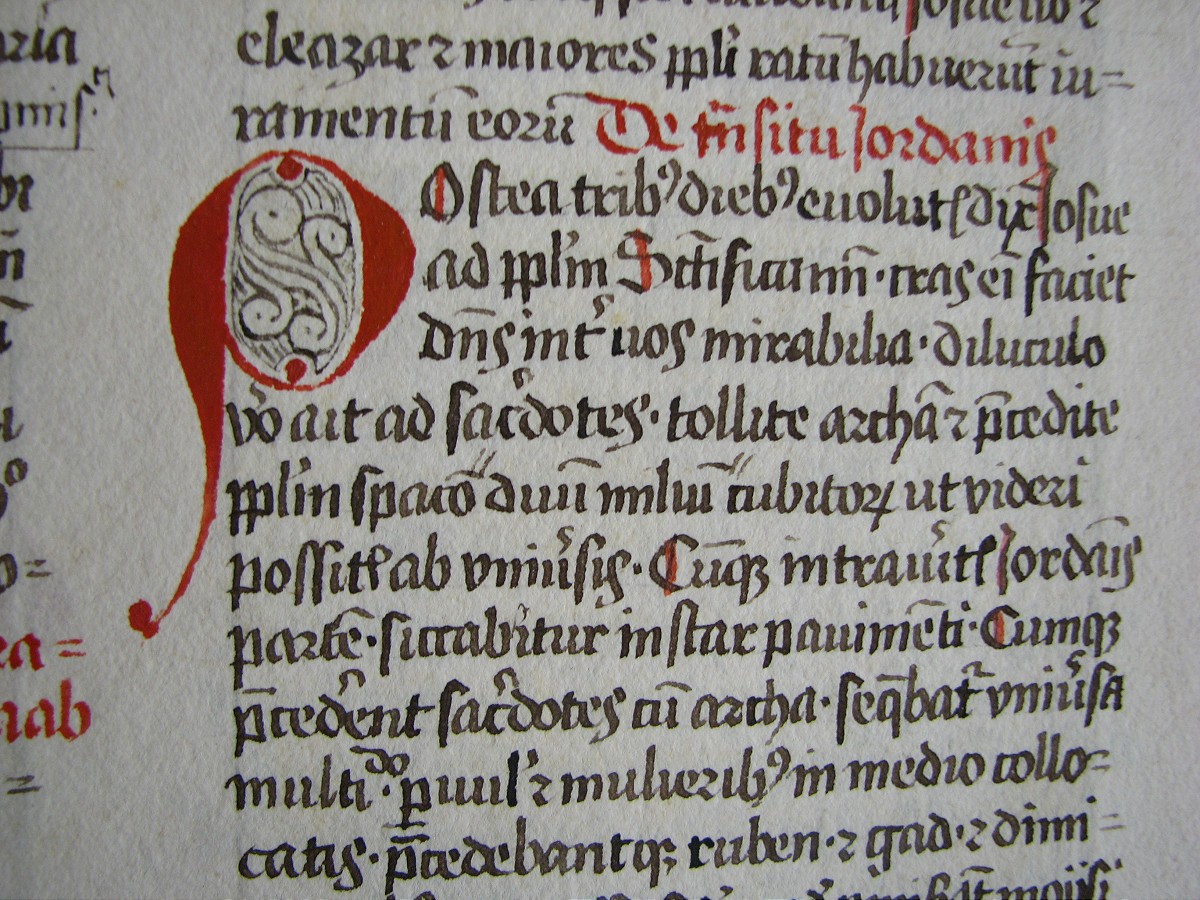 aria
eleazar ⁊ maiores ppl̅i ratu̅ habueru̅t iu=
ramentu̅ eoru̅ De tn̅situ Jordanis
Postea tribꝰ diebꝰ euolutꝭ dix̅ Josue
ad ppl̅m Sct̅ificamin̅· cras ei̅ faciet
dn̅s int̛ uos mirabilia· diluculo
v̊o ait ad sac̛dotes· tollite archa̅ ⁊ p̅cedite
ppl̅m spacio̅ duu̅ miliu̅ cubitoꝝ ut videri
possitꝭ ab vniưsis· Cu̅qꝫ intraưitꝭ Jorda̅is
parte̅· siccabitur instar pauime̅ti· Cumqꝫ
p̅cede̛nt sac̛dotes cu̅ archa· seq̅bat᷑ vniưsa
multi᷒do· ꝑuul̛ ⁊ mulieribꝰ in medio collo=
catis· p̅cedebantqꝫ ruben· ⁊ gad· ⁊ dimi=
ea=
nab